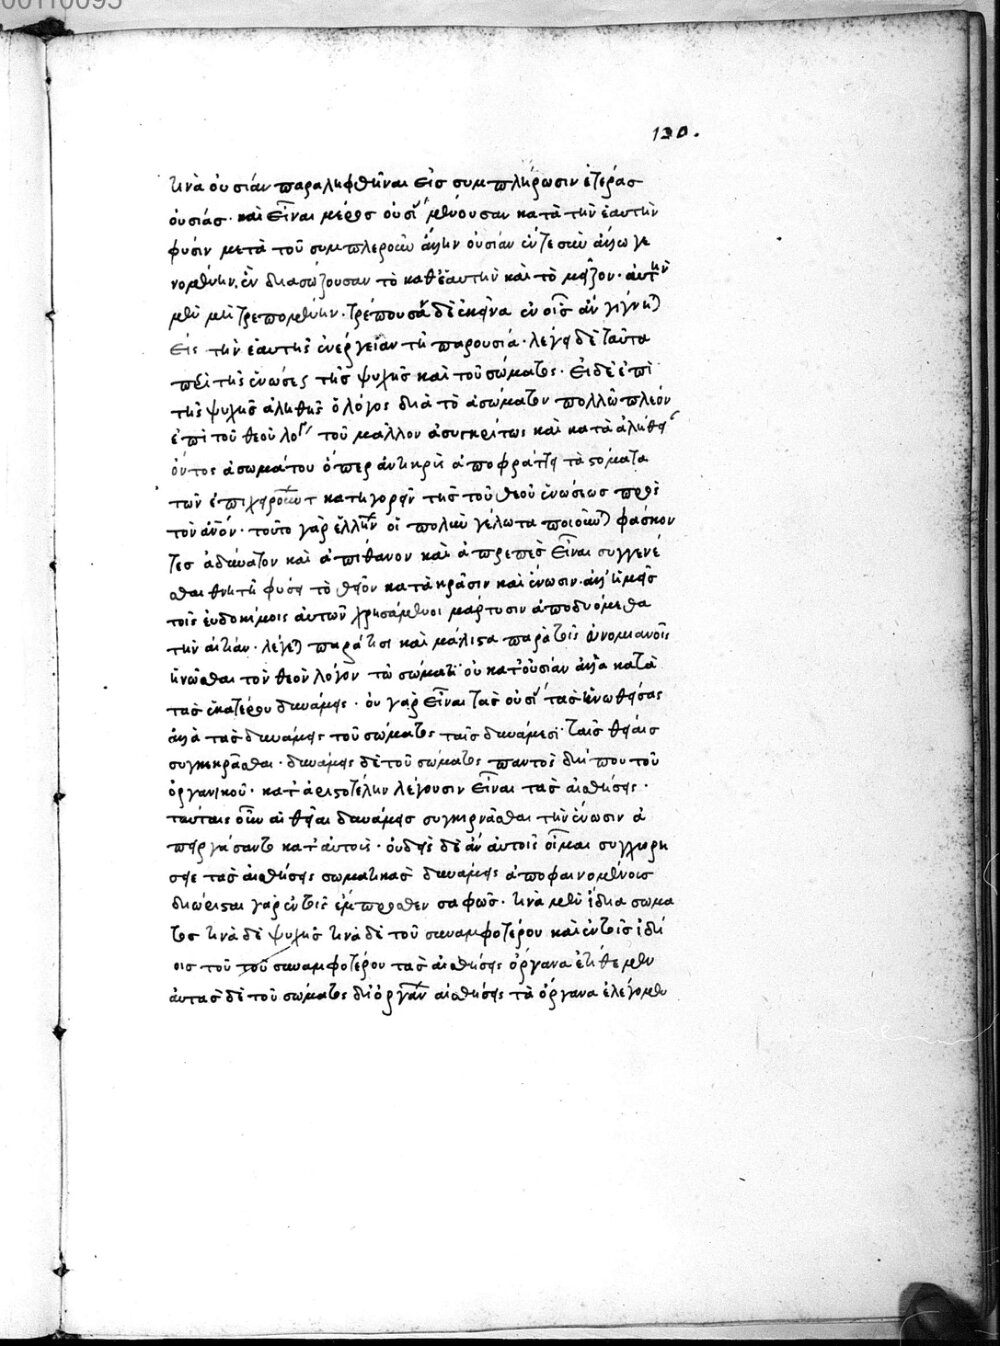 00110095
130.
τινὰ οὐσίαν παραληφθῆναι εἰς συμπλήρωσιν ἑτέρας
οὐσίας· καὶ εἶναι μέρος οὐσί μένουσαν κατὰ τὴν ἑαυτὴν
φύσιν μετὰ τοῦ συμπληροῦν ἄλλην οὐσίαν ἕν τε σὺν ἄλλω γε
νομένην. ἓν διασώζουσαν τὸ καθ' ἑαυτὴν καὶ τὸ μεῖζον· αὐτὴν
μὲν μὴ τρεπομένην· τρέπουσαν δὲ ἐκεῖνα ἐν οἷς ἂν γίγνηται
εἰς τὴν ἑαυτῆς ἐνέργειαν τῆ παρουσία· λέγει δὲ ταῦτα
περὶ τῆς ἑνώσεως τῆς ψυχῆς καὶ τοῦ σώματος· εἰ δὲ ἐπὶ
τῆς ψυχῆς ἀληθὴς ὁ λόγος διὰ τὸ ἀσώματον πολλῶ πλέον
ἐπὶ τοῦ θεοῦ λο τοῦ μᾶλλον ἀσυγκρίτως καὶ κατὰ ἀλήθει
ὄντος ἀσωμάτου ὅπερ ἄντικρυς ἀποφράττει τὰ στόματα
τῶν ἐπιχειρούντ κατηγορεῖν τῆς τοῦ θεοῦ ἑνώσεως πρὸς
τὸν ἄνον· τοῦτο γὰρ ἕλλην οἱ πολὺν γέλωτα ποιοῦνται φάσκον
τες ἀδύνατον καὶ ἀπίθανον καὶ ἀπρεπὲς εἶναι συγγενέ
σθαι θνητῆ φύσει τὸ θεῖον κατὰ κρᾶσιν καὶ ἕνωσιν· ἀλλ' ἡμεῖς
τοῖς εὐδοκίμοις αὐτῶν χρησάμενοι μάρτυσιν ἀποδυόμεθα
τὴν αἰτίαν· λέγεται παρά τισι καὶ μάλιστα παρὰ τοῖς εὐνομιανοῖς
ἡνῶσθαι τὸν θεὸν λόγον τῶ σώματι οὐ κατ' οὐσίαν ἀλλὰ κατὰ
τὰς ἑκατέρου δυνάμεις· οὐ γὰρ εἶναι τὰς οὐσί τὰς ἑνωθείσας
ἀλλὰ τὰς δυνάμεις τοῦ σώματος ταῖς δυνάμεσι ταῖς θείαις
συγκεκρᾶσθαι· δυνάμεις δὲ τοῦ σώματος παντὸς δήπου τοῦ
ὀργανικοῦ· κατ' ἀριστοτέλην λέγουσιν εἶναι τὰς αἰσθήσεις·
ταύταις οὖν αἱ θεῖαι δυνάμεις συγκιρνᾶσθαι τὴν ἕνωσιν ἀ
πειργάσαντο κατ' αὐτούς· οὐδεὶς δὲ ἂν αὐτοῖς οἶμαι συγχωρή
σειε τὰς αἰσθήσεις σωματικὰς δυνάμεις ἀποφαινομένοις
διώρισται γὰρ ἐν τοῖς ἔμπροσθεν σαφῶς· τινὰ μὲν ἴδια σώμα
τος τινὰ δὲ ψυχῆς τινὰ δὲ τοῦ συναμφοτέρου καὶ ἐν τοῖς ἰδί
οις τοῦ τοῦ συναμφοτέρου τὰς αἰσθήσεις ὄργανα ἐτίθεμεν
αὐτὰς δὲ τοῦ σώματος δι' ὀργάν αἰσθήσεις τὰ ὄργανα ἐλέγομεν